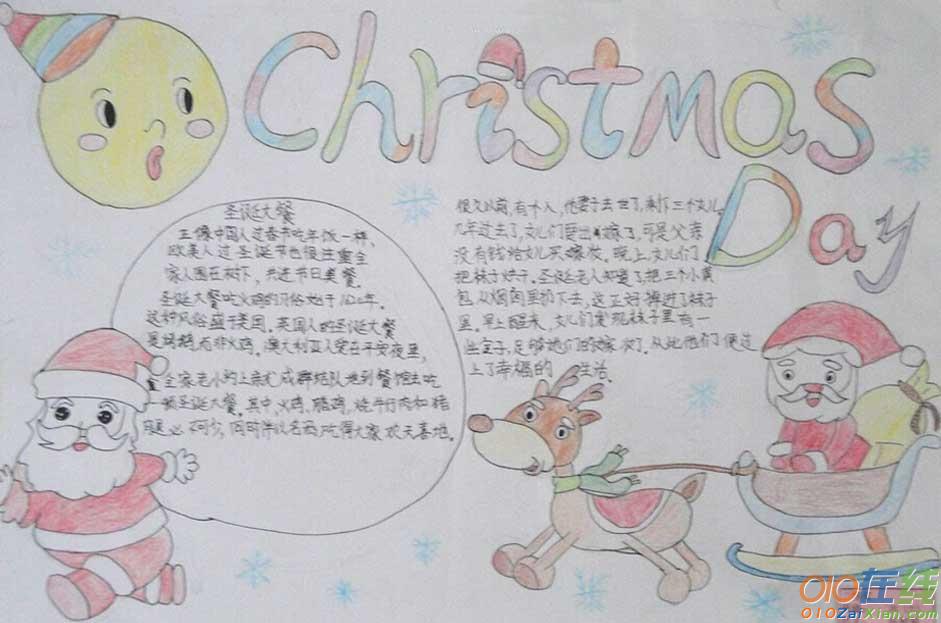 Christmas
Day
圣诞大餐
正像中国人过春节吃年饭一样，
欧美人过圣诞节也很注重全
家人围在树下，共进节日美餐。
圣诞大餐吃火鸡的习俗始于1620年。
这种风俗盛于美国。英国人的圣诞大餐
是烤鹅，而非火鸡。澳大利亚人爱在平安夜里，
全家老小约上亲友成群结队地到餐馆去吃
一顿圣诞大餐。其中，火鸡、腊鸡、烧牛仔肉和猪
必不可少，同时伴以名酒，吃得大家欢天喜地。
很久以前，有个人，他妻子去世了，剩下三个女儿。
几年过去了，女儿们要出嫁了，可是父亲
没有钱给女儿买嫁妆。晚上，女儿们
把袜子烘干。圣诞老人知道了，把三个小黄
包，从烟囱里扔下去，这正好掉进了袜子
里。早上醒来，女儿们发现袜子里有一
些金子，足够她们的嫁妆了。从此他们便过
上了幸福的生活。
010在线
010ZaiXian.com